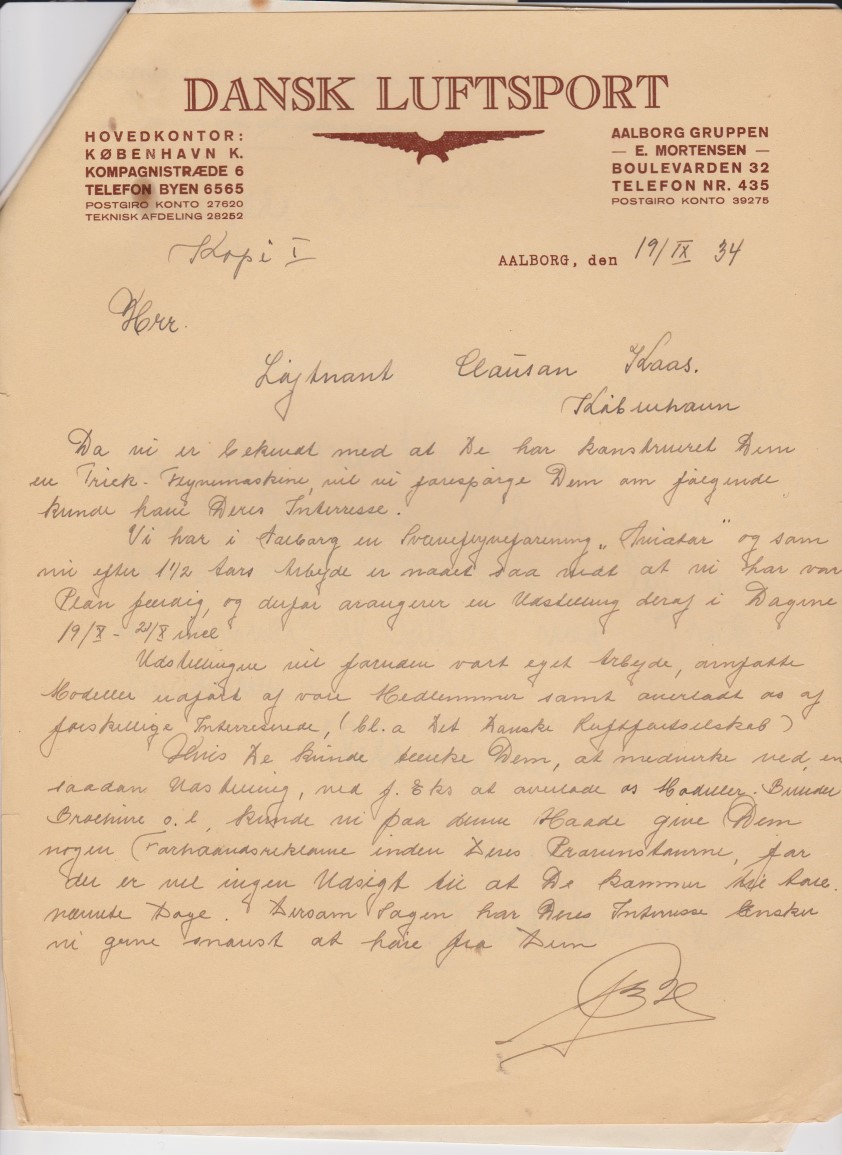 DANSK LUFTSPORT
HOVEDKONTOR:
KØBENHAVN K.
KOMPAGNISTRÆDE 6
TELEFON BYEN 6565
POSTGIRO KONTO 27620
TEKNISK AFDELING 28252
AALBORG GRUPPEN
— E. MORTENSEN —
BOULEVARDEN 32
TELEFON NR. 435
POSTGIRO KONTO 39275
Kopi I
AALBORG, den 19/IX 34
Hrr.
Løjtnant Clausan Kaas.
København
Da vi er bekendt med at De har konstrueret Dem
en Trick-Flyvemaskine, vil vi forespørge Dem om følgende
kunde have Deres Interresse.
Vi har i Aalborg en Svæveflyveforening „Aviator" og som
nu efter 1 1/2 Aars Arbejde er naaet saa vidt at vi har vor
Plan færdig, og derfor arangerer en Udstilling deraf i Dagene
19/X - 21/X incl
Udstillingen vil foruden vort eget Arbejde, omfatte
Modeller udført af vore Medlemmer samt overladt os af
forskellige Interreserede, (bl.a Det Danske Luftfartselskab)
Hvis De kunde tænke Dem, at medvirke ved en
saadan Udstilling, ved f. Eks at overlade os Modeller. Billeder
Brochure o.l, kunde vi paa denne Maade give Dem
nogen Forhaandsreklame inden Deres Provinstourne, for
der er vel ingen Udsigt til at De kommer til
nævnte Dage. Dersom Sagen har Deres Interresse ønsker
vi gerne snarest at høre fra Dem